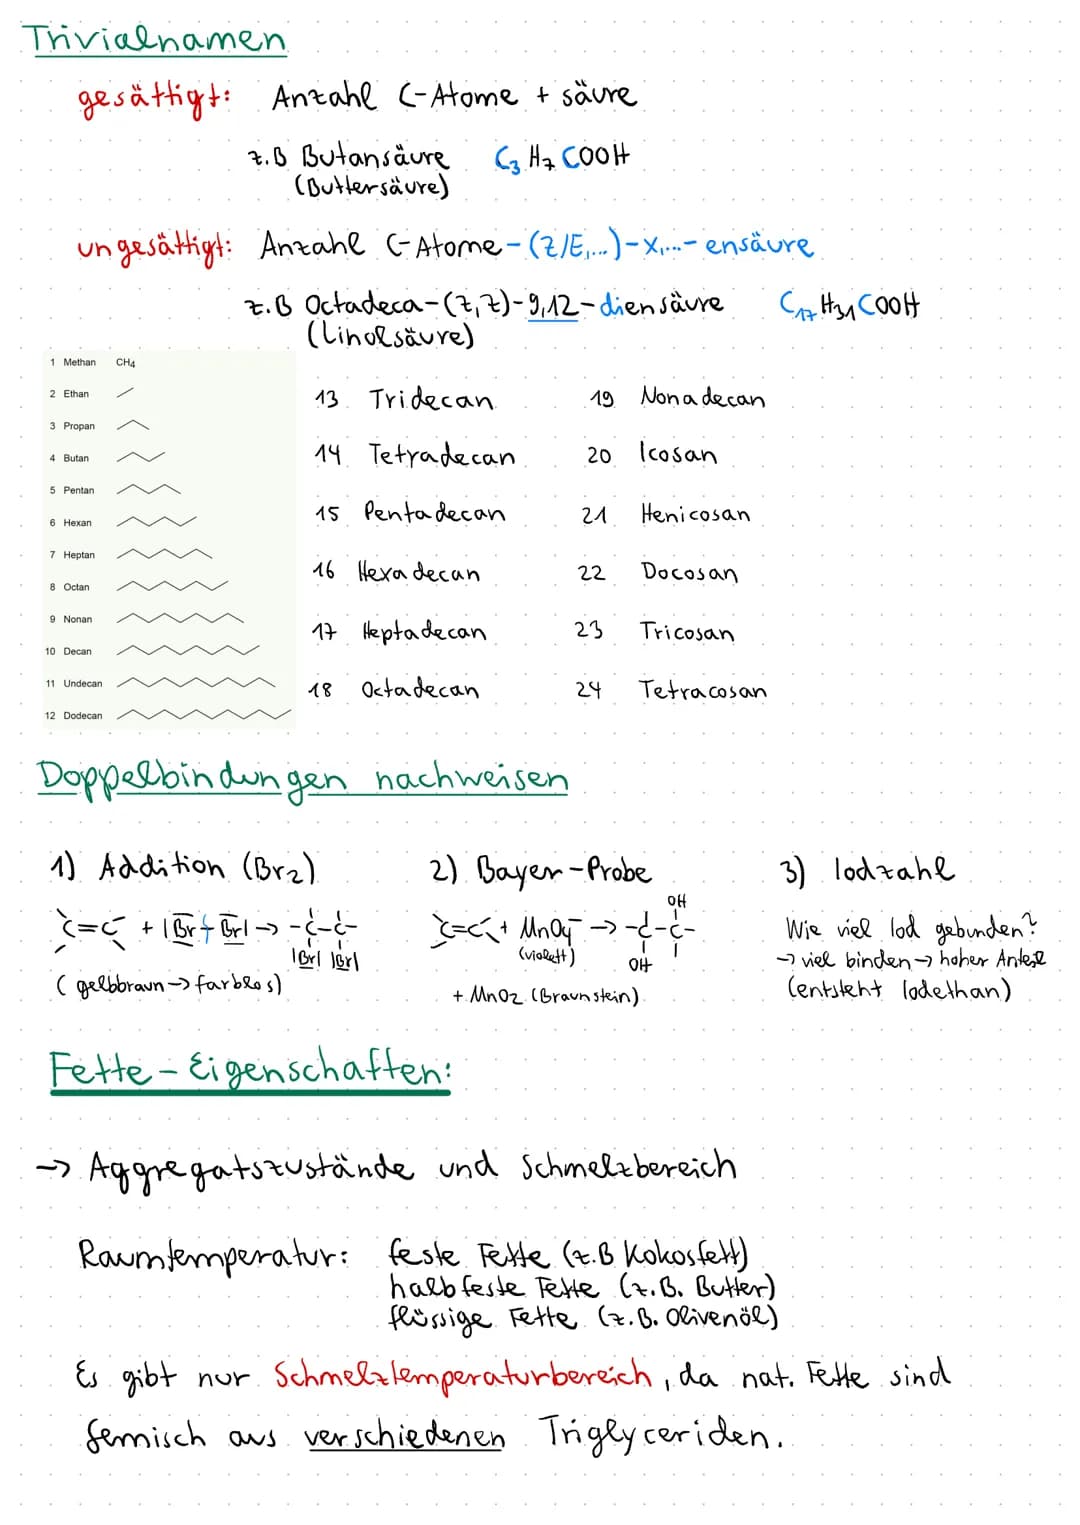 Trivialnamen
gesättigt: Anzahl C-Atome + säure
z.B Butansäure C₃H₇COOH
(Buttersäure)
ungesättigt: Anzahl C-Atome-(Z/E,...)-X,...-ensäure
z.B Octadeca-(Z,Z)-9,12-diensäure C₁₇H₃₁COOH
(Linolsäure)
1 Methan CH4
2 Ethan
3 Propan
4 Butan
5 Pentan
6 Hexan
7 Heptan
8 Octan
9 Nonan
10 Decan
11 Undecan
12 Dodecan
13 Tridecan
14 Tetradecan
15 Pentadecan
16 Hexadecan
17 Heptadecan
18 Octadecan
19 Nonadecan
20 Icosan
21 Henicosan
22 Docosan
23 Tricosan
24 Tetracosan
Doppelbindungen nachweisen
1) Addition (Br₂)
C=C + |Br-Br| → -C-C-
|Br| |Br|
(gelbbraun → farblos)
2) Bayer-Probe
OH
C=C + MnO₄⁻ → -C-C-
(violett) OH
+ MnO₂ (Braunstein)
3) Iodzahl
Wie viel Iod gebunden?
→ viel binden → hoher Anteil
(entsteht Iodethan)
Fette-Eigenschaften:
→ Aggregatszustände und Schmelzbereich
Raumtemperatur: feste Fette (z.B Kokosfett)
halbfeste Fette (z.B. Butter)
flüssige Fette (z.B. Olivenöl)
Es gibt nur Schmelztemperaturbereich, da nat. Fette sind
Gemisch aus verschiedenen Triglyceriden.